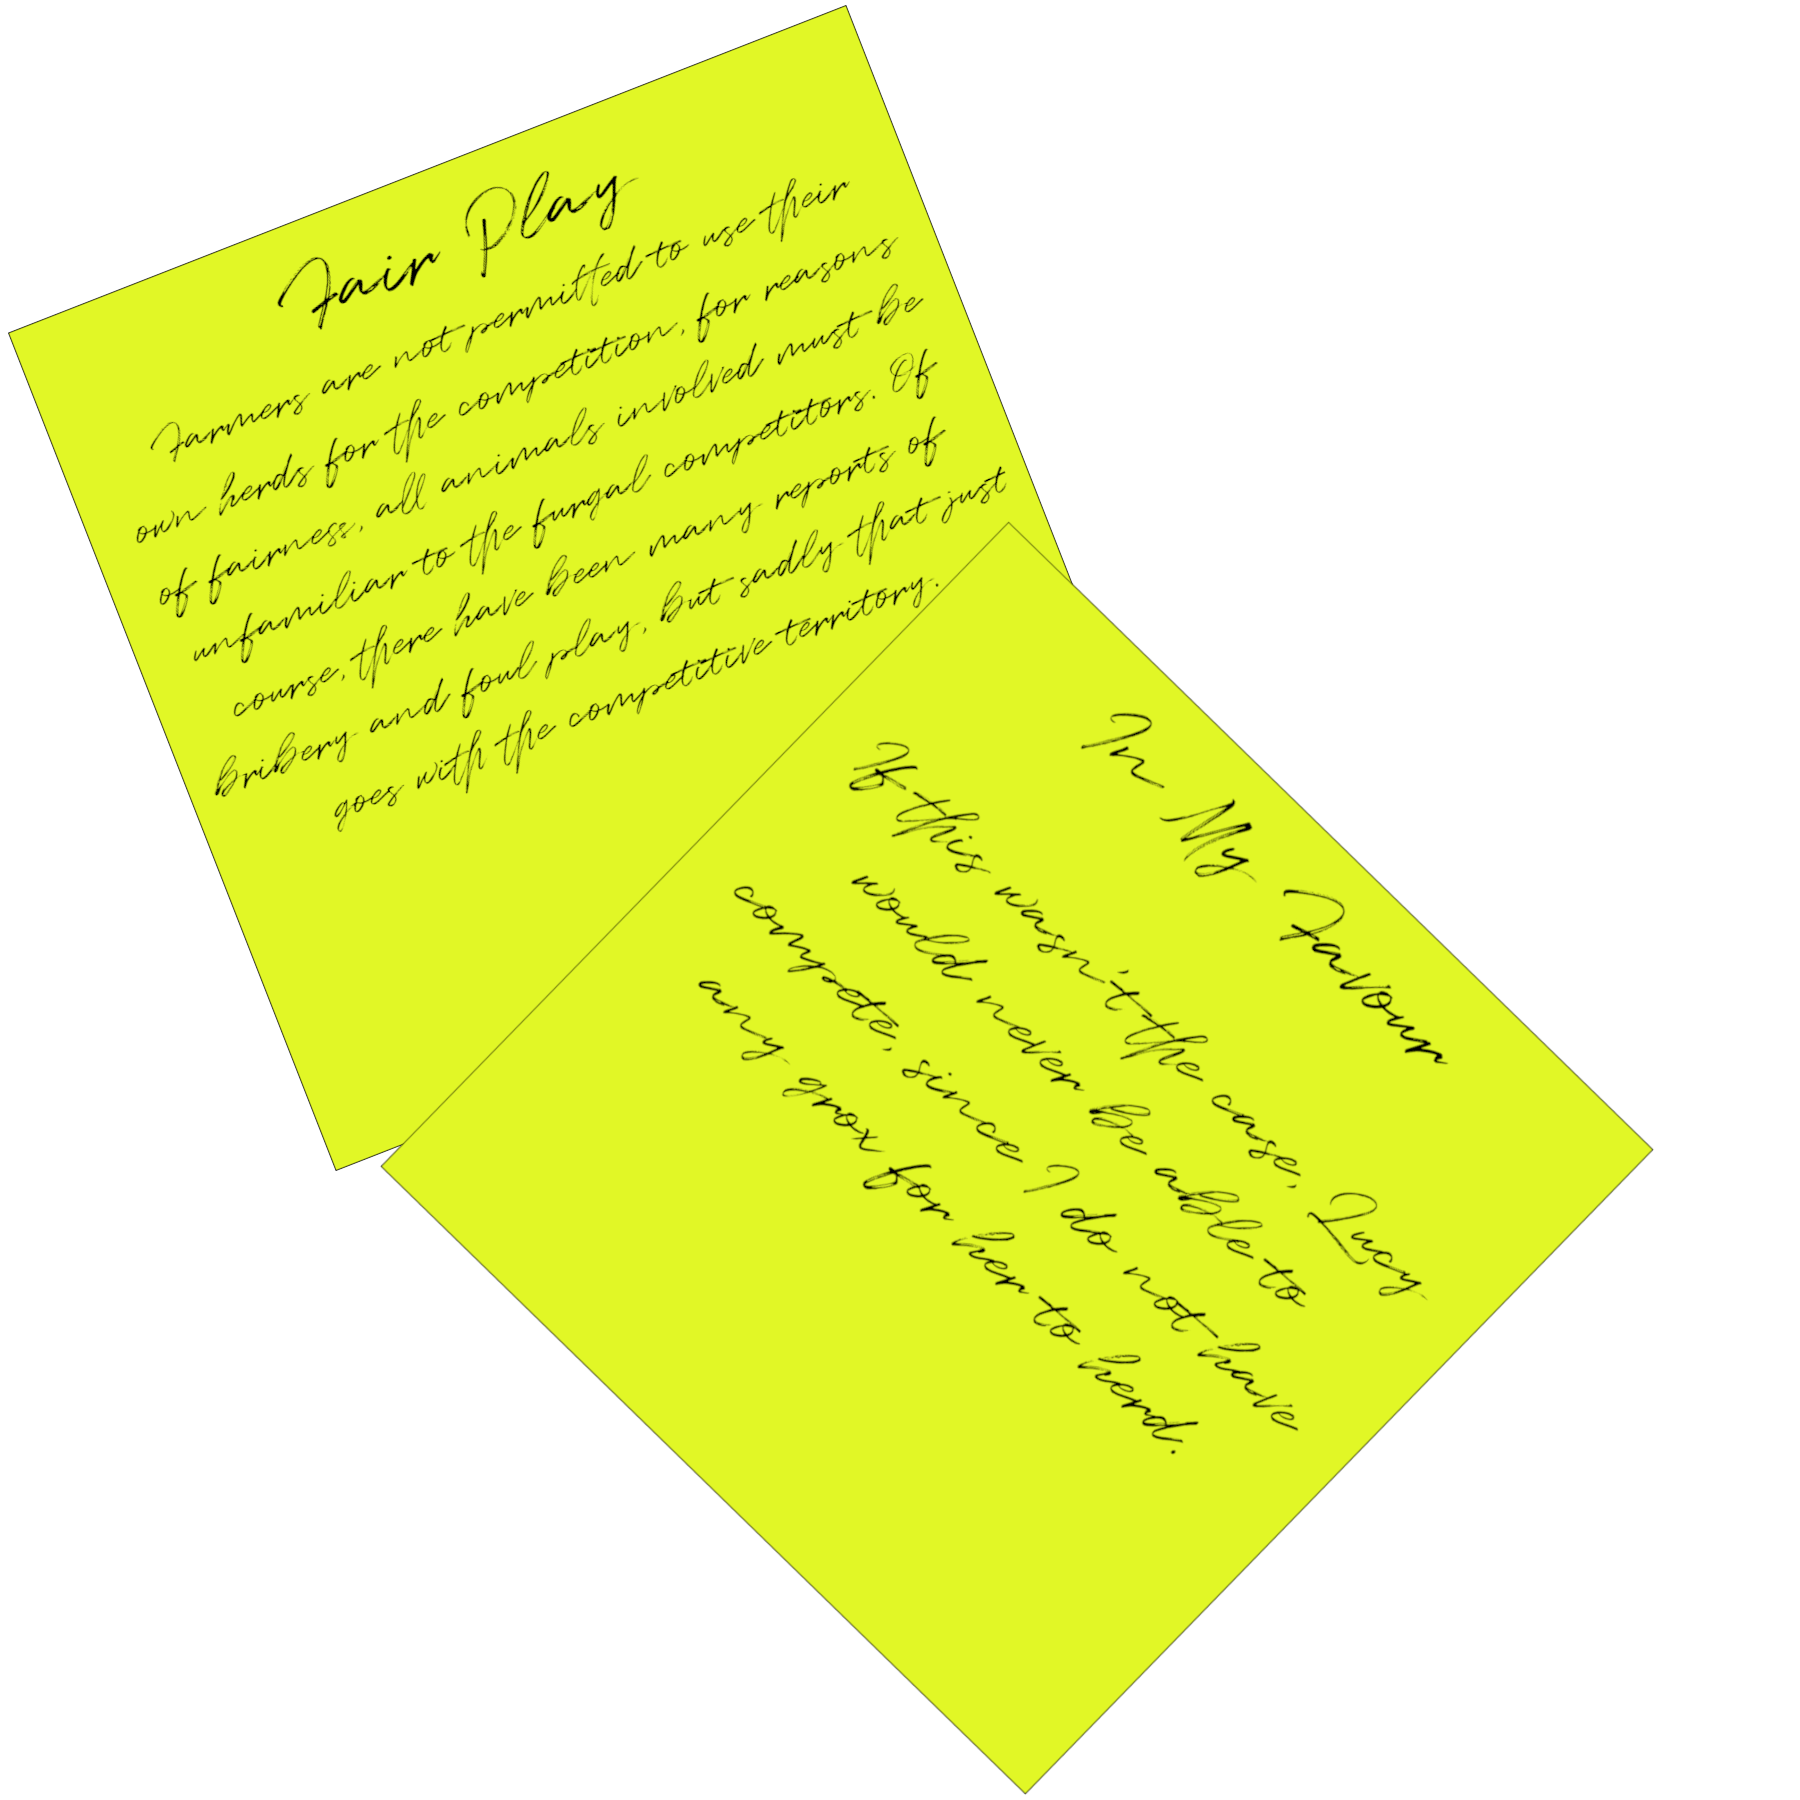 Fair Play
Farmers are not permitted to use their
own herds for the competition, for reasons
of fairness, all animals involved must be
unfamiliar to the furgal competitors. Of
course, there have been many reports of
bribery and foul play, but sadly that just
goes with the competitive territory.
In My Favour
If this wasn't the case, Lucy
would never be able to
compete, since I do not have
any grox for her to herd.